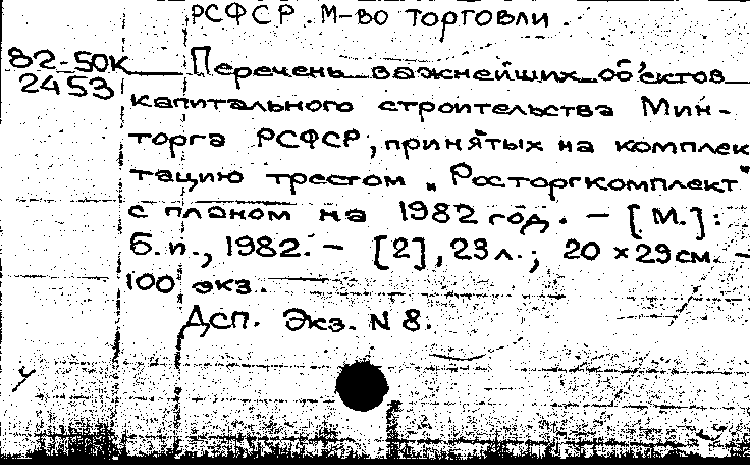 РСФСР. М-во торговли.
82-50к Перечень важнейших объектов
2453 капитального строительства Мин-
торга РСФСР, принятых на комплек
тацию трестом „Росторгкомплект"
с планом на 1982 год. — [М.]:
б.и., 1982. — [2], 23 л.; 20 × 29 см. —
100 экз.
ДСП. Экз. N 8.